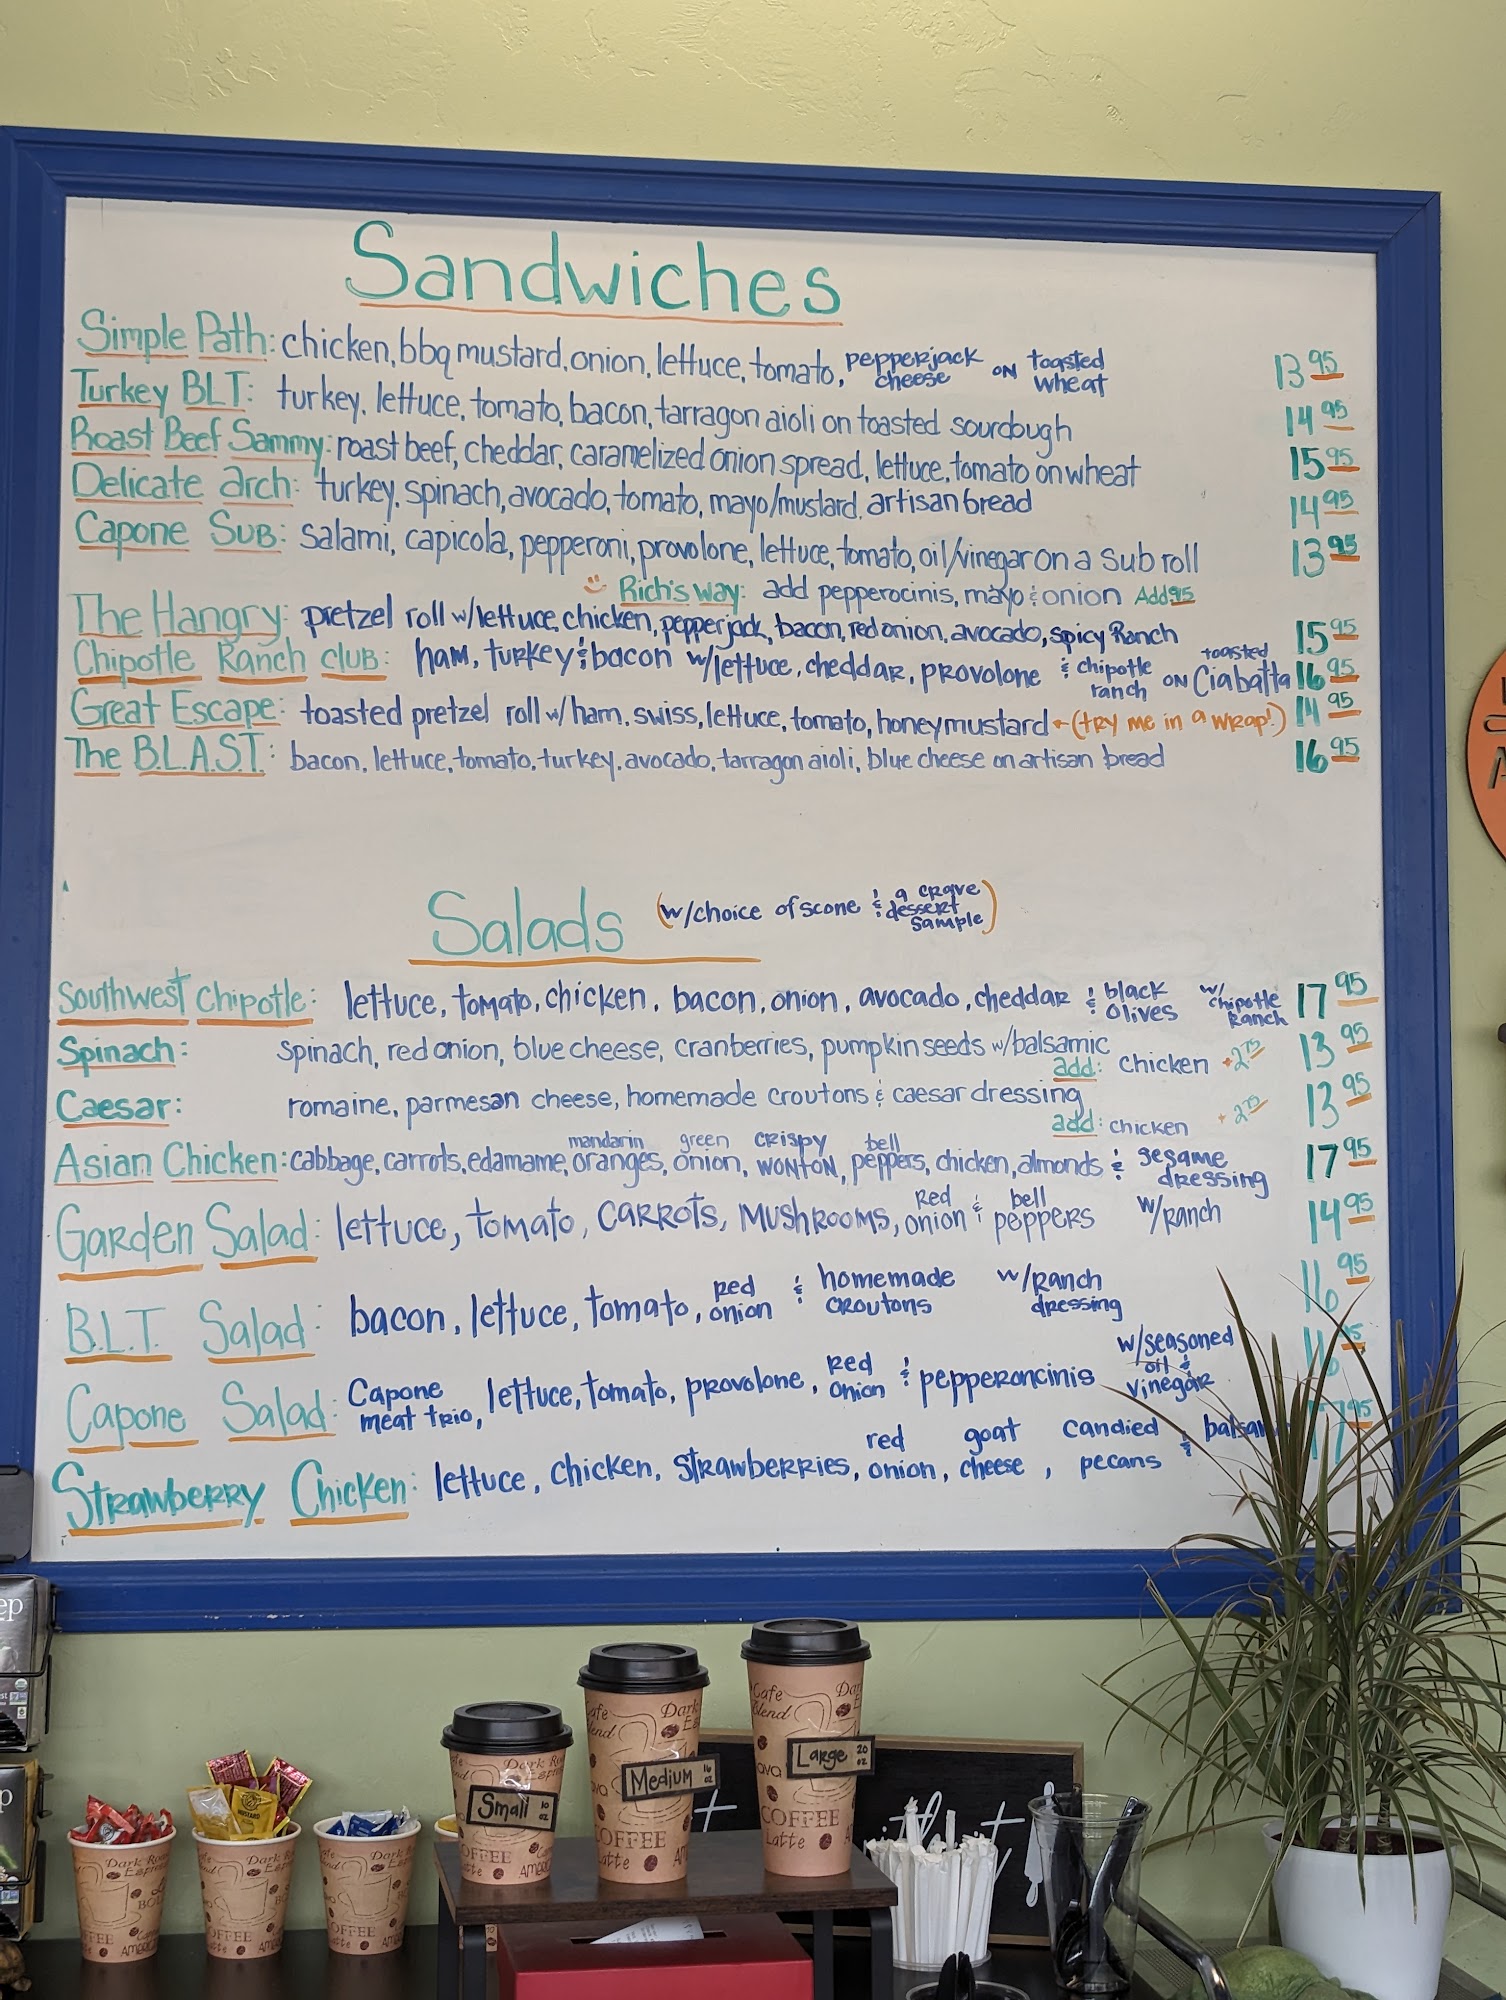 Sandwiches
Simple Path: chicken, bbq mustard, onion, lettuce, tomato, pepperjack cheese on toasted wheat 13 95
Turkey BLT: turkey, lettuce, tomato, bacon, tarragon aioli on toasted sourdough 14 95
Roast Beef Sammy: roast beef, cheddar, caramelized onion spread, lettuce, tomato on wheat 15 95
Delicate Arch: turkey, spinach, avocado, tomato, mayo/mustard, artisan bread 14 95
Capone Sub: salami, capicola, pepperoni, provolone, lettuce, tomato, oil/vinegar on a sub roll 13 95
Rich's way: add pepperocinis, mayo & onion Add 95
The Hangry: pretzel roll w/lettuce, chicken, pepperjack, bacon, red onion, avocado, spicy Ranch 15 95
Chipotle Ranch Club: ham, turkey & bacon w/lettuce, cheddar, provolone & chipotle ranch on toasted Ciabatta 16 95
Great Escape: toasted pretzel roll w/ham, swiss, lettuce, tomato, honey mustard - (try me in a wrap!) 14 95
The B.L.A.S.T.: bacon, lettuce, tomato, turkey, avocado, tarragon aioli, blue cheese on artisan bread 16 95
Salads (w/choice of scone & a crave dessert sample)
Southwest Chipotle: lettuce, tomato, chicken, bacon, onion, avocado, cheddar & black olives w/ chipotle Ranch 17 95
Spinach: spinach, red onion, blue cheese, cranberries, pumpkin seeds w/balsamic 13 95
add: chicken +2 75
Caesar: romaine, parmesan cheese, homemade croutons & caesar dressing 13 95
add: chicken +2 75
Asian Chicken: cabbage, carrots, edamame, mandarin oranges, green onion, crispy wonton, bell peppers, chicken, almonds & sesame dressing 17 95
Garden Salad: lettuce, tomato, carrots, mushrooms, red onion & bell peppers w/ranch 14 95
B.L.T. Salad: bacon, lettuce, tomato, red onion & homemade croutons w/ranch dressing 16 95
Capone Salad: Capone meat trio, lettuce, tomato, provolone, red onion & pepperoncinis w/seasoned oil & vinegar 16
Strawberry Chicken: lettuce, chicken, strawberries, red onion, goat cheese, candied pecans & balsam 17 95
Small 10 oz
Medium 16 oz
Large 20 oz